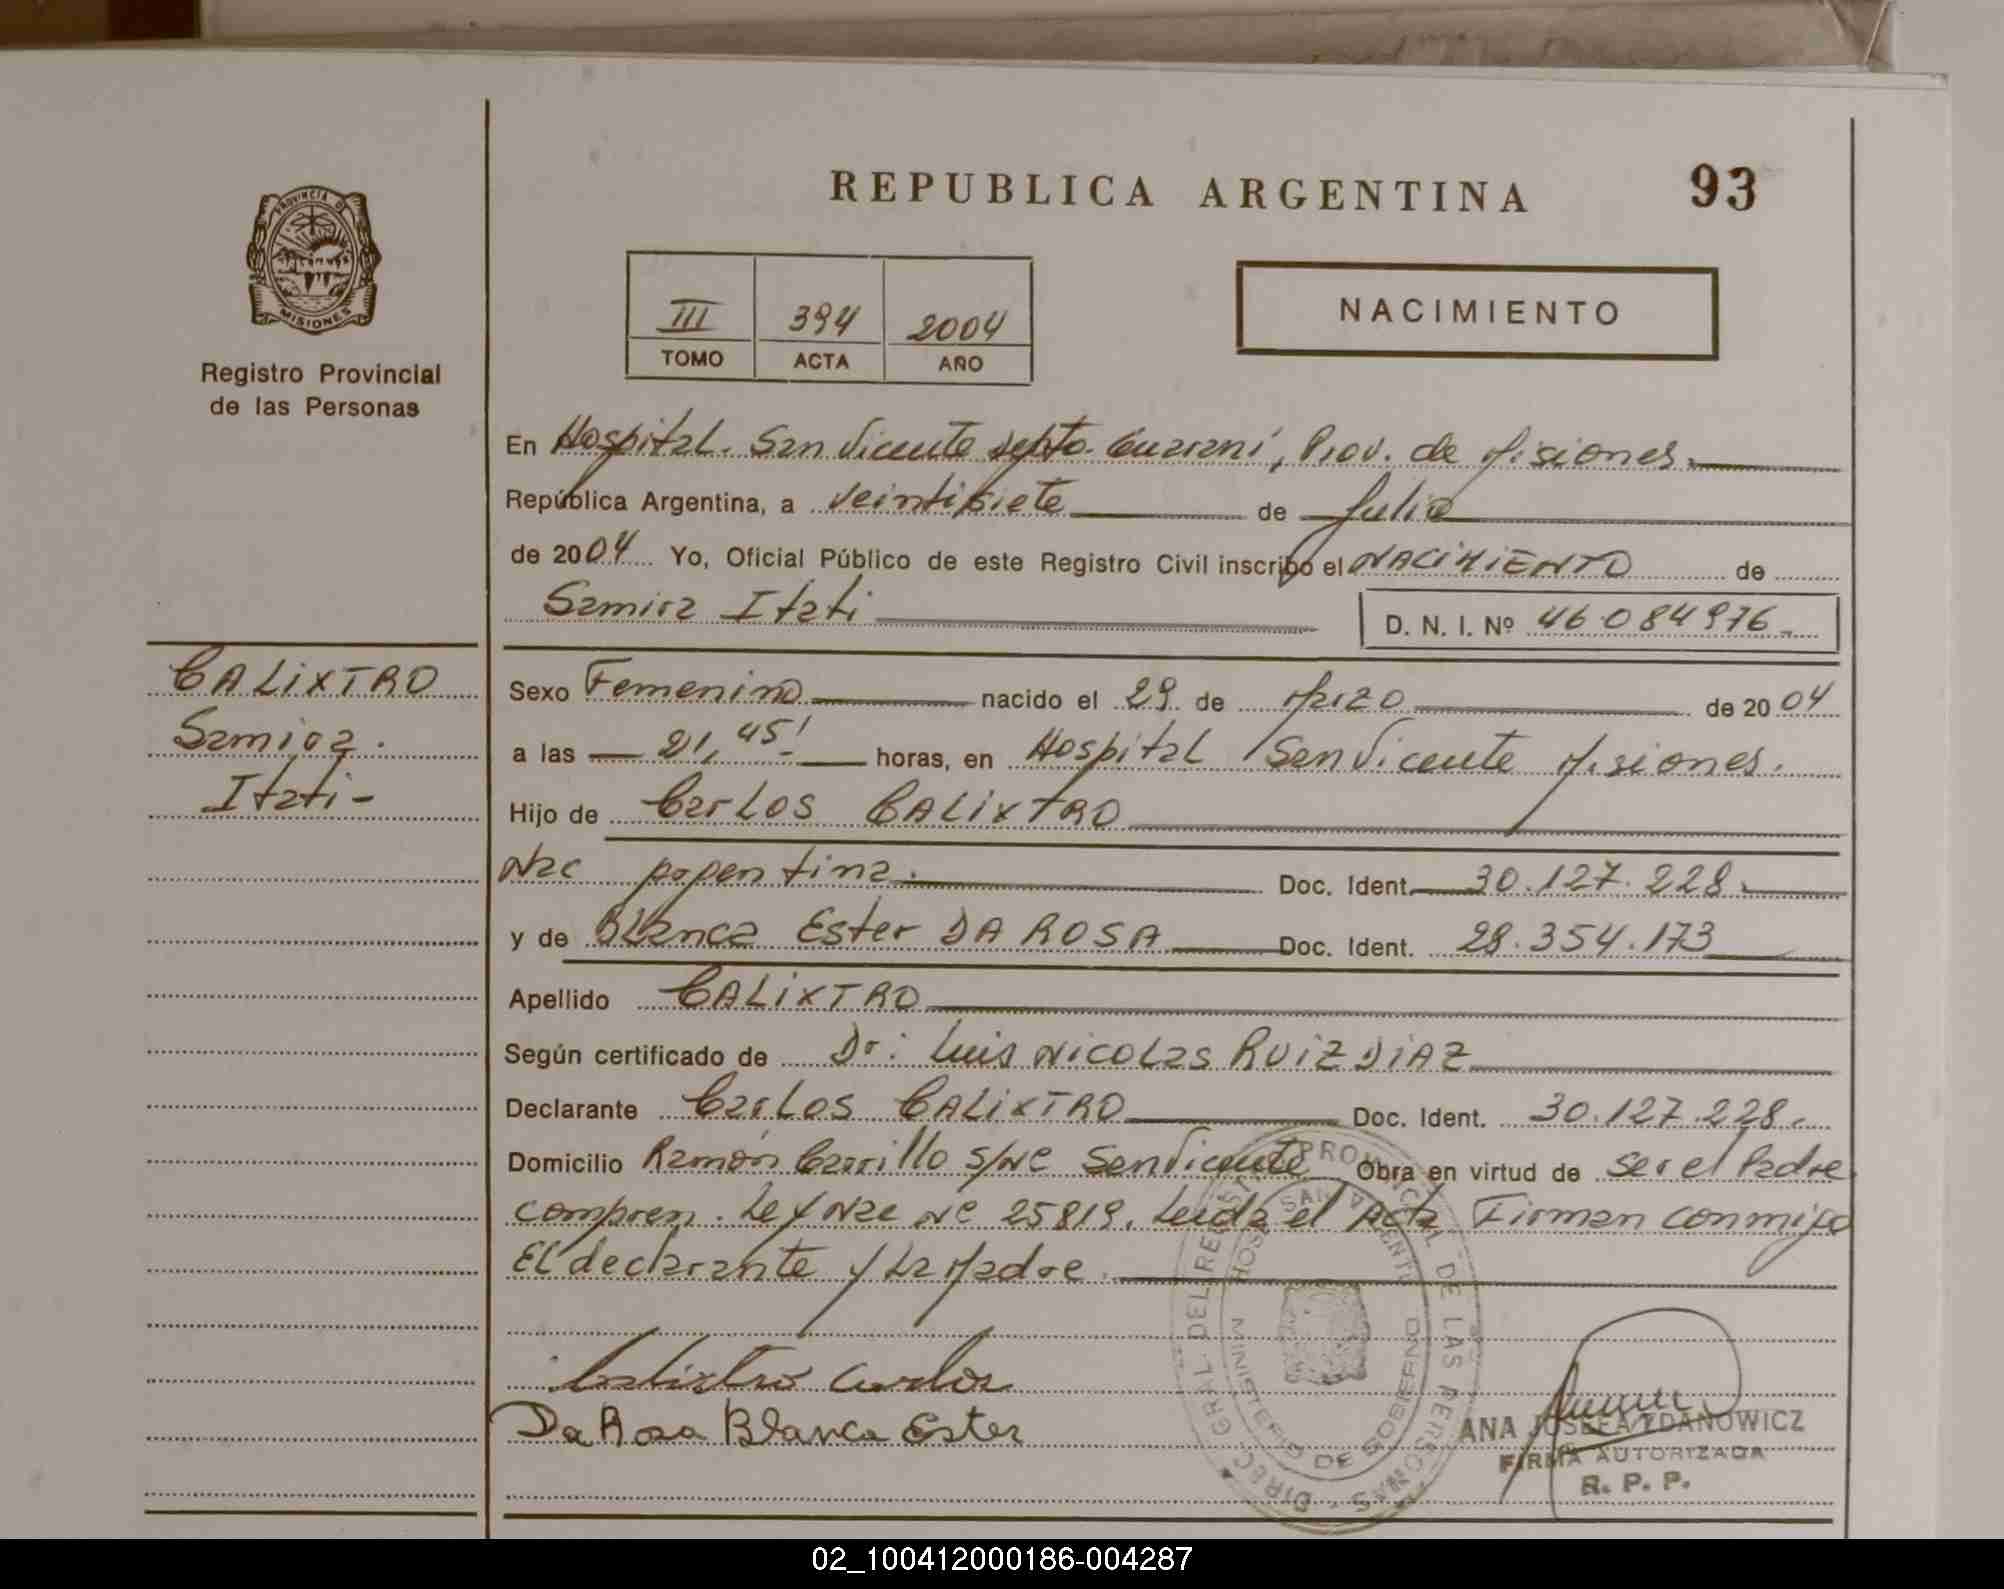 REPUBLICA ARGENTINA
93
PROVINCIA D
MISIONES
Registro Provincial
de las Personas
III 394 2004
TOMO ACTA AÑO
NACIMIENTO
En Hospital. San Vicente Depto. Guarani, Prov. de Misiones.
República Argentina, a Veintisiete de Julio
de 2004 Yo, Oficial Público de este Registro Civil inscribo el NACIMIENTO de
Samira Itati
D. N. I. Nº 46.084976_
CALIXTRO
Samira.
Itati-
Sexo Femenino nacido el 29 de Marzo de 2004
a las 21,45! horas, en Hospital San Vicente Misiones.
Hijo de Carlos CALIXTRO
Nac Argentina. Doc. Ident. 30.127.228.
y de Blanca Ester DA ROSA Doc. Ident. 28.354.173
Apellido CALIXTRO
Según certificado de Dr: Luis Nicolas RUIZ DIAZ
Declarante Carlos CALIXTRO Doc. Ident. 30.127.228.
Domicilio Ramón Carrillo s/Nº San Vicente Obra en virtud de ser el Padre
compren. Ley Nac Nº 25819. Leida el Acta Firman conmigo
El declarante y La Madre.
Calistro Carlos
Da Rosa Blanca Ester
DIREC. GRAL. DEL REGIST PROVINCIAL DE LAS PERSONAS
HOSP SAN VICENTE
MINISTERIO DE GOBIERNO
ANA JOSEFA ZDANOWICZ
FIRMA AUTORIZADA
R. P. P.
02_100412000186-004287